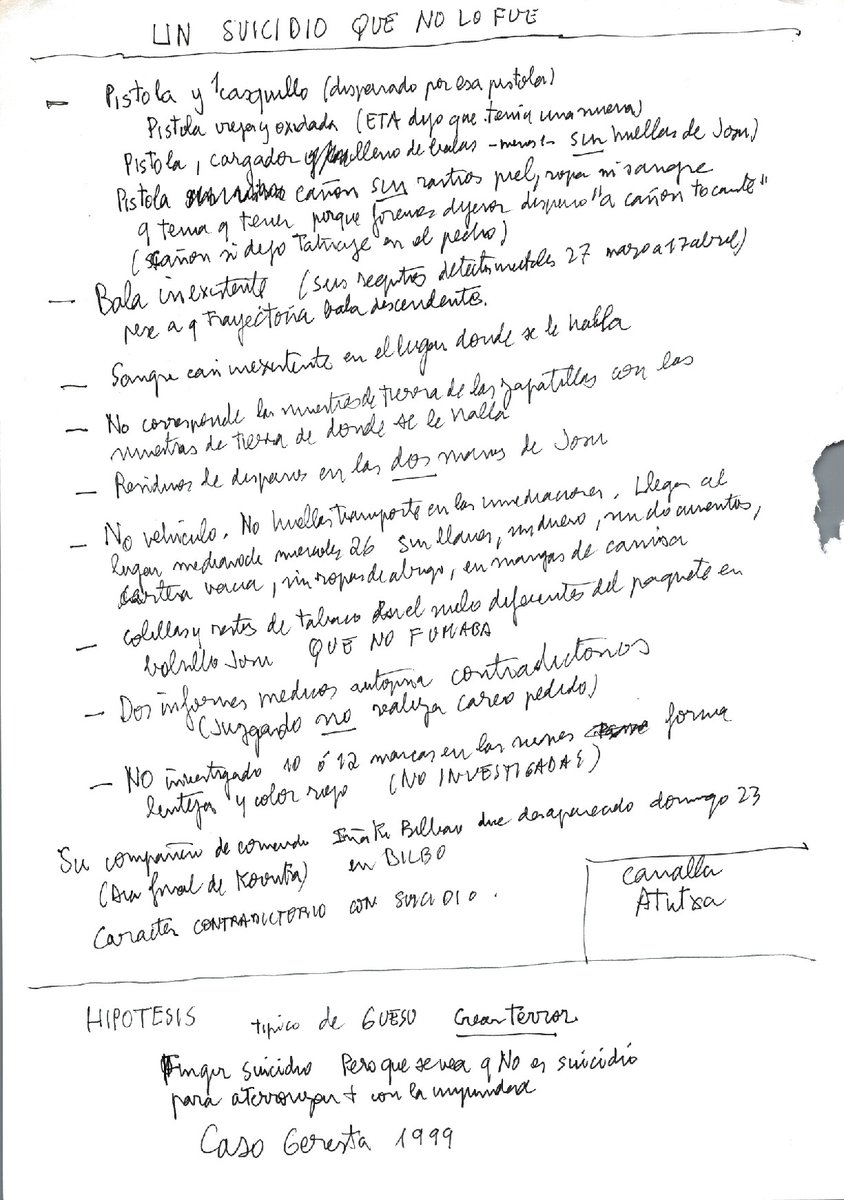 UN SUICIDIO QUE NO LO FUE
- Pistola y 1 casquillo (disparado por esa pistola)
Pistola vieja y oxidada (ETA dijo que tenía una nueva)
Pistola, cargador lleno de balas - menos 1 - sin huellas de Josu)
Pistola cañon sin rastros piel, ropa ni sangre
q tenía q tener porque forenses dijeron disparo "a cañon tocante"
(cañon si dejo Tatuaje en el pecho)
- Bala inexistente (seis registros detectores metales 27 marzo a 17 abril)
pese a q Trayectoria bala descendente.
- Sangre casi inexistente en el lugar donde se le halla
- No corresponde las muestras de tierra de las zapatillas con las
muestras de tierra de donde se le halla
- Residuos de disparos en las dos manos de Josu
- No vehículo. No huellas transporte en las inmediaciones. Llegar al
lugar mediano de miercoles 26 sin llaves, sin dinero, sin documentos,
cartera vacia, sin ropas de abrigo, en mangas de camisa
- Colillas y restos de tabaco en el suelo diferentes del paquete en
bolsillo Josu QUE NO FUMABA
- Dos informes medicos autopsia contradictorios
(Juzgado no realiza careo pedido)
- NO investigado 10 ó 12 marcas en las nalgas forma
lentejas y color rojo (NO INVESTIGADAS)
Su compañero de comando Iñaki Bilbao dice desaparecido domingo 23
(Acu final de Koventa) en BILBO
Caracter CONTRADICTORIO CON SUICIDIO.
canalla
Atutxa
HIPOTESIS tipico de G. SUCIA Crear terror
Fingir suicidio Pero que se vea q No es suicidio
para aterrorizar + con la impunidad
Caso Geresta 1999